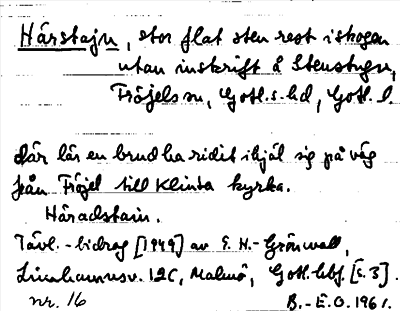 Härstajn, stor flat sten rest i skogen
utan inskrift å Stenstugu,
Fröjels sn, Gotl. s. hd, Gotl. l.
där lär en brud ha ridit ihjäl sig på väg
från Fröjel till Klinta kyrka.
Häradstain.
Tävl.-bidrag [1949] av E. H.-Grönwall,
Limhamnsv. 12C, Malmö, Gotl. hbf. [s. 3].
nr. 16 B.-E.O. 1961.